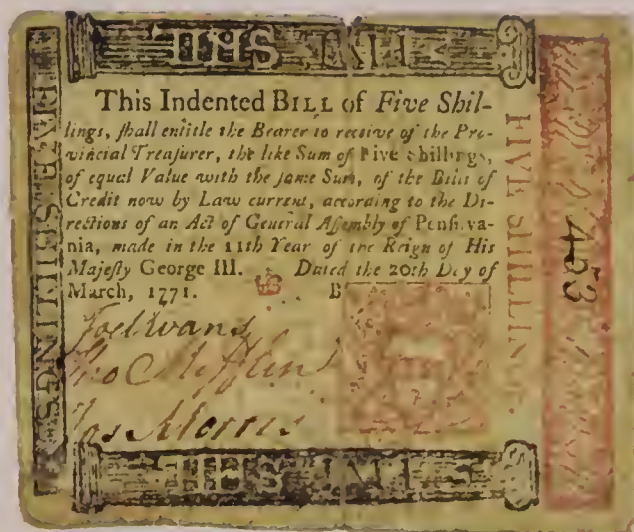 This Indented BILL of Five Shil-
lings, ſhall entitle the Bearer to receive of the Pro-
vincial Treaſurer, the like Sum of Five Shillings,
of equal Value with the ſame Sum, of the Bills of
Credit now by Law current, according to the Di-
rections of an Act of General Aſſembly of Penſilva-
nia, made in the 11th Year of the Reign of His
Majeſty George III. Dated the 20th Day of
March, 1771. B
Joel Evans
Tho Mifflin
Jos Morris
FIVE SHILLINGS
FIVE SHILLINGS
453